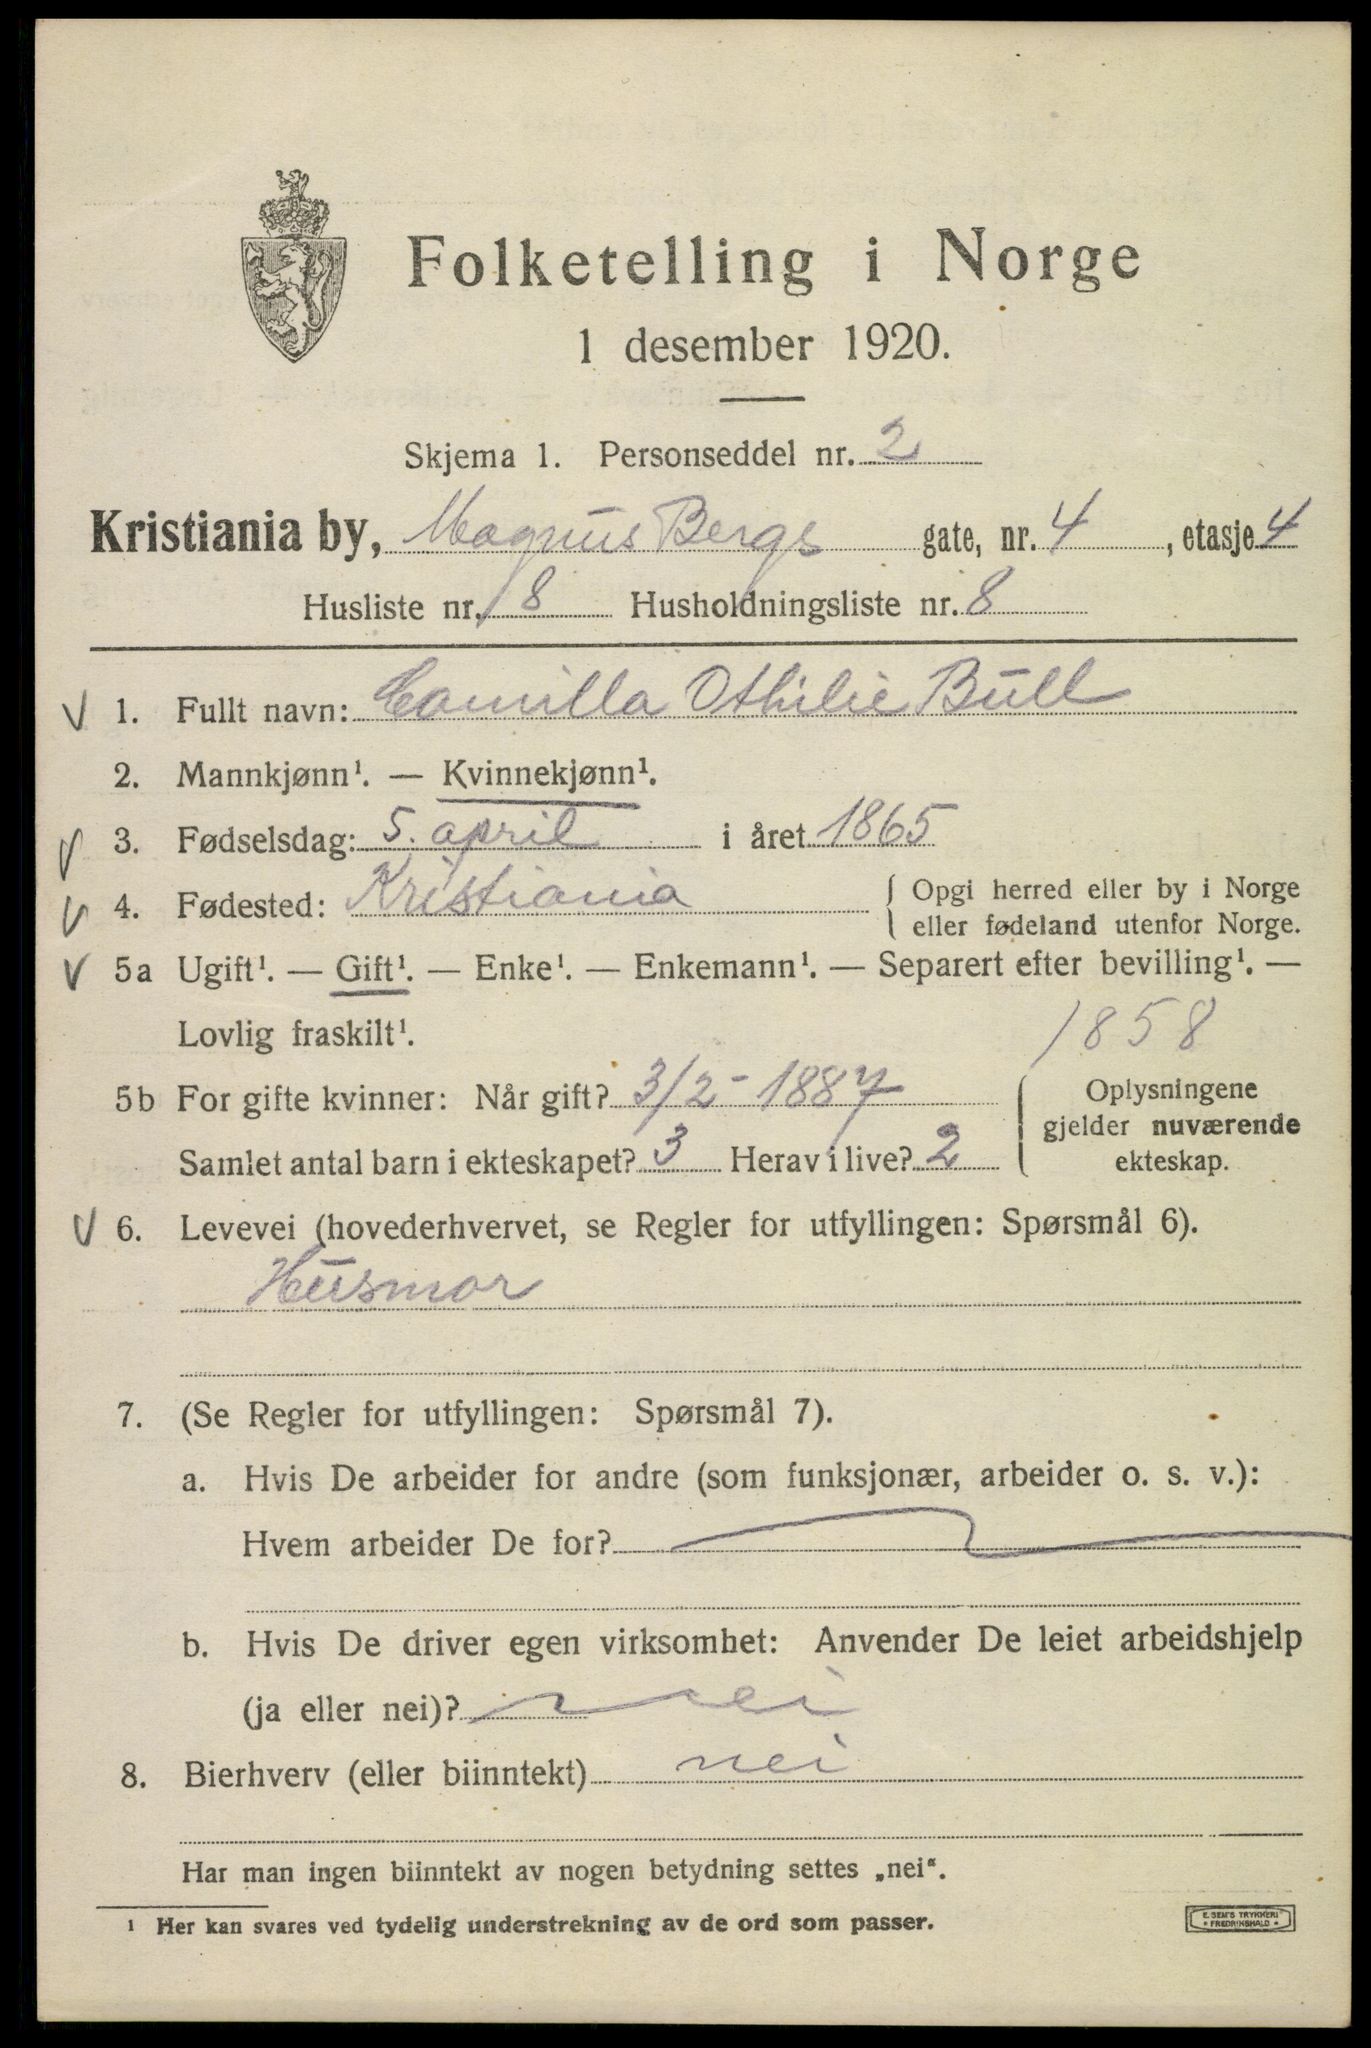 Folketelling i Norge
1 desember 1920.
Skjema 1. Personseddel nr. 2
Kristiania by, Magnus Bergs gate, nr. 4, etasje 4
Husliste nr. 8 Husholdningsliste nr. 8
1. Fullt navn: Camilla Othilie Bull
2. Mannkjønn¹. — Kvinnekjønn¹.
3. Fødselsdag: 5. april i året 1865
4. Fødested: Kristiania { Opgi herred eller by i Norge
eller fødeland utenfor Norge.
5a Ugift¹. — Gift¹. — Enke¹. — Enkemann¹. — Separert efter bevilling¹. —
Lovlig fraskilt¹.
1858
5b For gifte kvinner: Når gift? 3/2 - 1887
Samlet antal barn i ekteskapet? 3 Herav i live? 2
Oplysningene
gjelder nuværende
ekteskap.
6. Levevei (hovederhvervet, se Regler for utfyllingen: Spørsmål 6).
Husmor
7. (Se Regler for utfyllingen: Spørsmål 7).
a. Hvis De arbeider for andre (som funksjonær, arbeider o. s. v.):
Hvem arbeider De for?
b. Hvis De driver egen virksomhet: Anvender De leiet arbeidshjelp
(ja eller nei)? nei
8. Bierhverv (eller biinntekt) nei
Har man ingen biinntekt av nogen betydning settes „nei“.
¹ Her kan svares ved tydelig understrekning av de ord som passer.
E. SEM'S TRYKKERI
• FREDRIKSHALD •